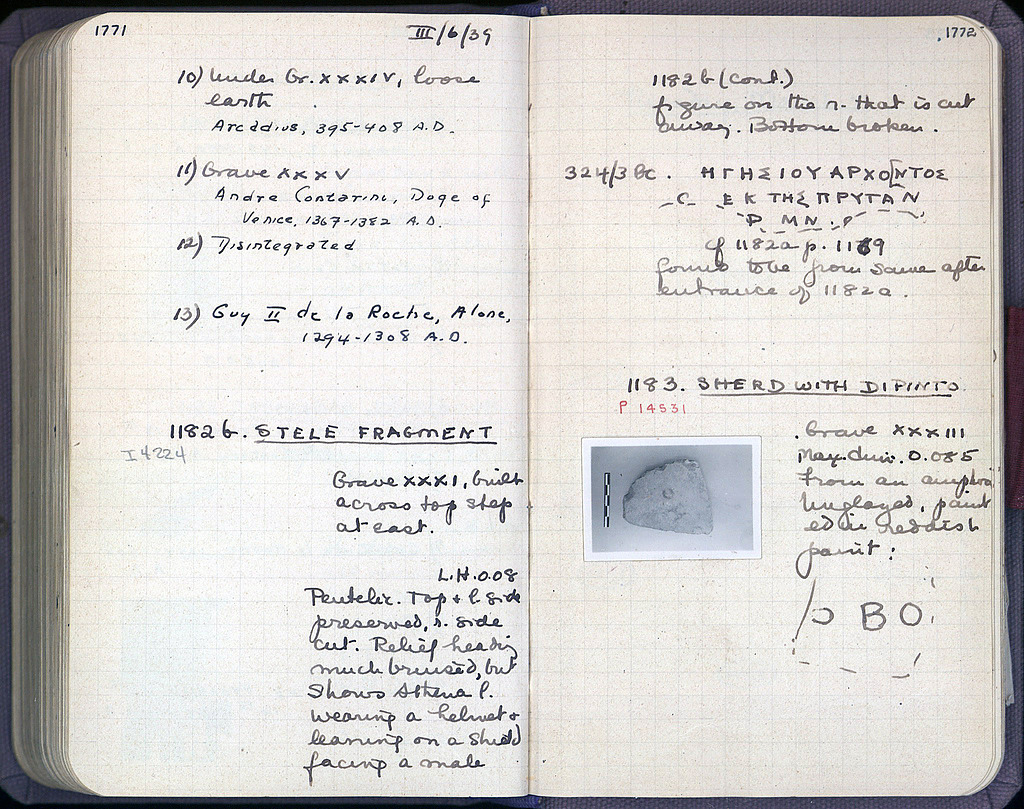 1771
III/6/39
10) Under Gr. XXXIV, loose
earth
Arcadius, 395-408 A.D.
11) Grave XXXV
Andrea Contarini, Doge of
Venice, 1367-1382 A.D.
12) Disintegrated
13) Guy II de la Roche, Alone,
1294-1308 A.D.
1182 b. STELE FRAGMENT
I 4224
Grave XXXI, built
across top step
at east.
L.H. 0.08
Pentelic. Top + l. side
preserved, r. side
cut. Relief heading
much bruised, but
shows Athena l.
wearing a helmet +
leaning on a shield
facing a male
1772
1182 b (cont.)
figure on the r. that is cut
away. Bottom broken.
324/3 BC. ΗΓΗΣΙΟΥ ΑΡΧΟ[ΝΤΟΣ
C ΕΚ ΤΗΣ ΠΡΥΤΑΝ
Ρ ΜΝ
cf 1182a p. 1169
found to be from same after
entrance of 1182a.
1183. SHERD WITH DIPINTO
P 14531
Grave XXXIII
Max. dim. 0.085
From an amphora
Unglazed, paint
ed in reddish
paint:
BO